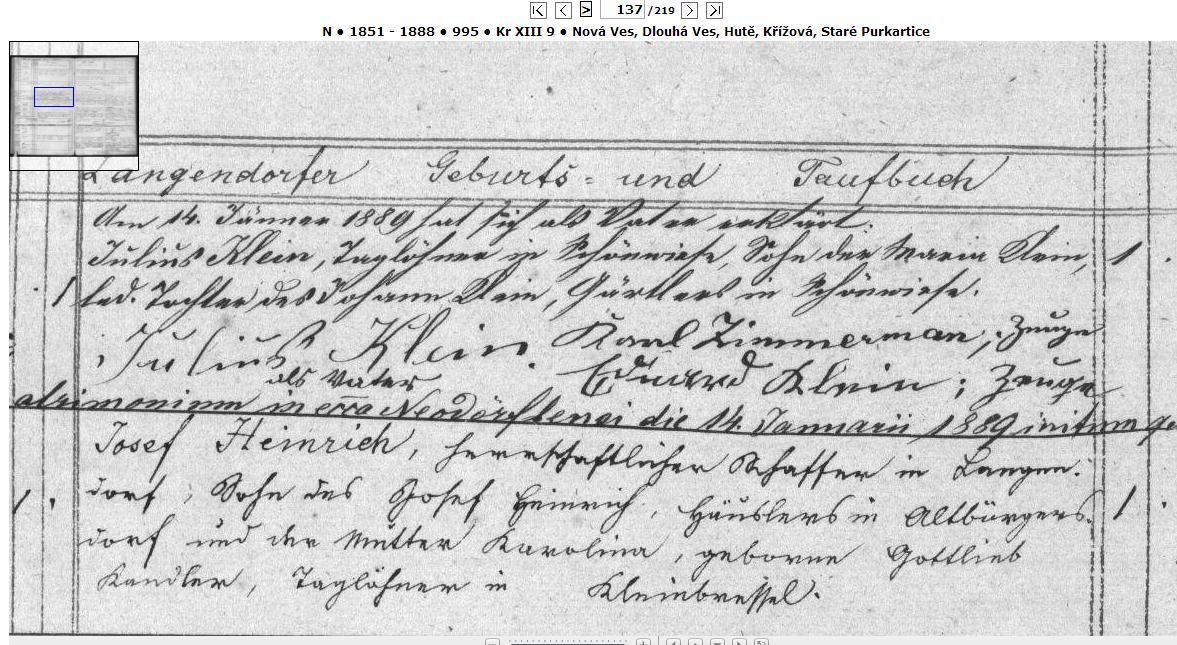 137 /219
N ● 1851 - 1888 ● 995 ● Kr XIII 9 ● Nová Ves, Dlouhá Ves, Hutě, Křížová, Staré Purkartice
Langendorfer Geburts- und Taufbuch
Am 14. Jänner 1889 hat sich als Vater erklärt
Julius Klein, Taglöhner in Schönwiese, Sohn der Maria Klein, 1
1 led. Tochter des Johann Klein, Gärtlers in Schönwiese.
Julius Klein Karl Zimmerman, Zeuge
als Vater Eduard Klein; Zeuge
atrimonium in ecca Neodörflensi die 14. Januarii 1889 initum
Josef Heinrich, herrschaftlicher Schaffer in Langen-
1. dorf, Sohn des Josef Heinrich, Häuslers in Altbürgers- 1.
dorf und der Mutter Karolina, geborne Gottlieb
Kandler, Taglöhner in Kleinbressel.